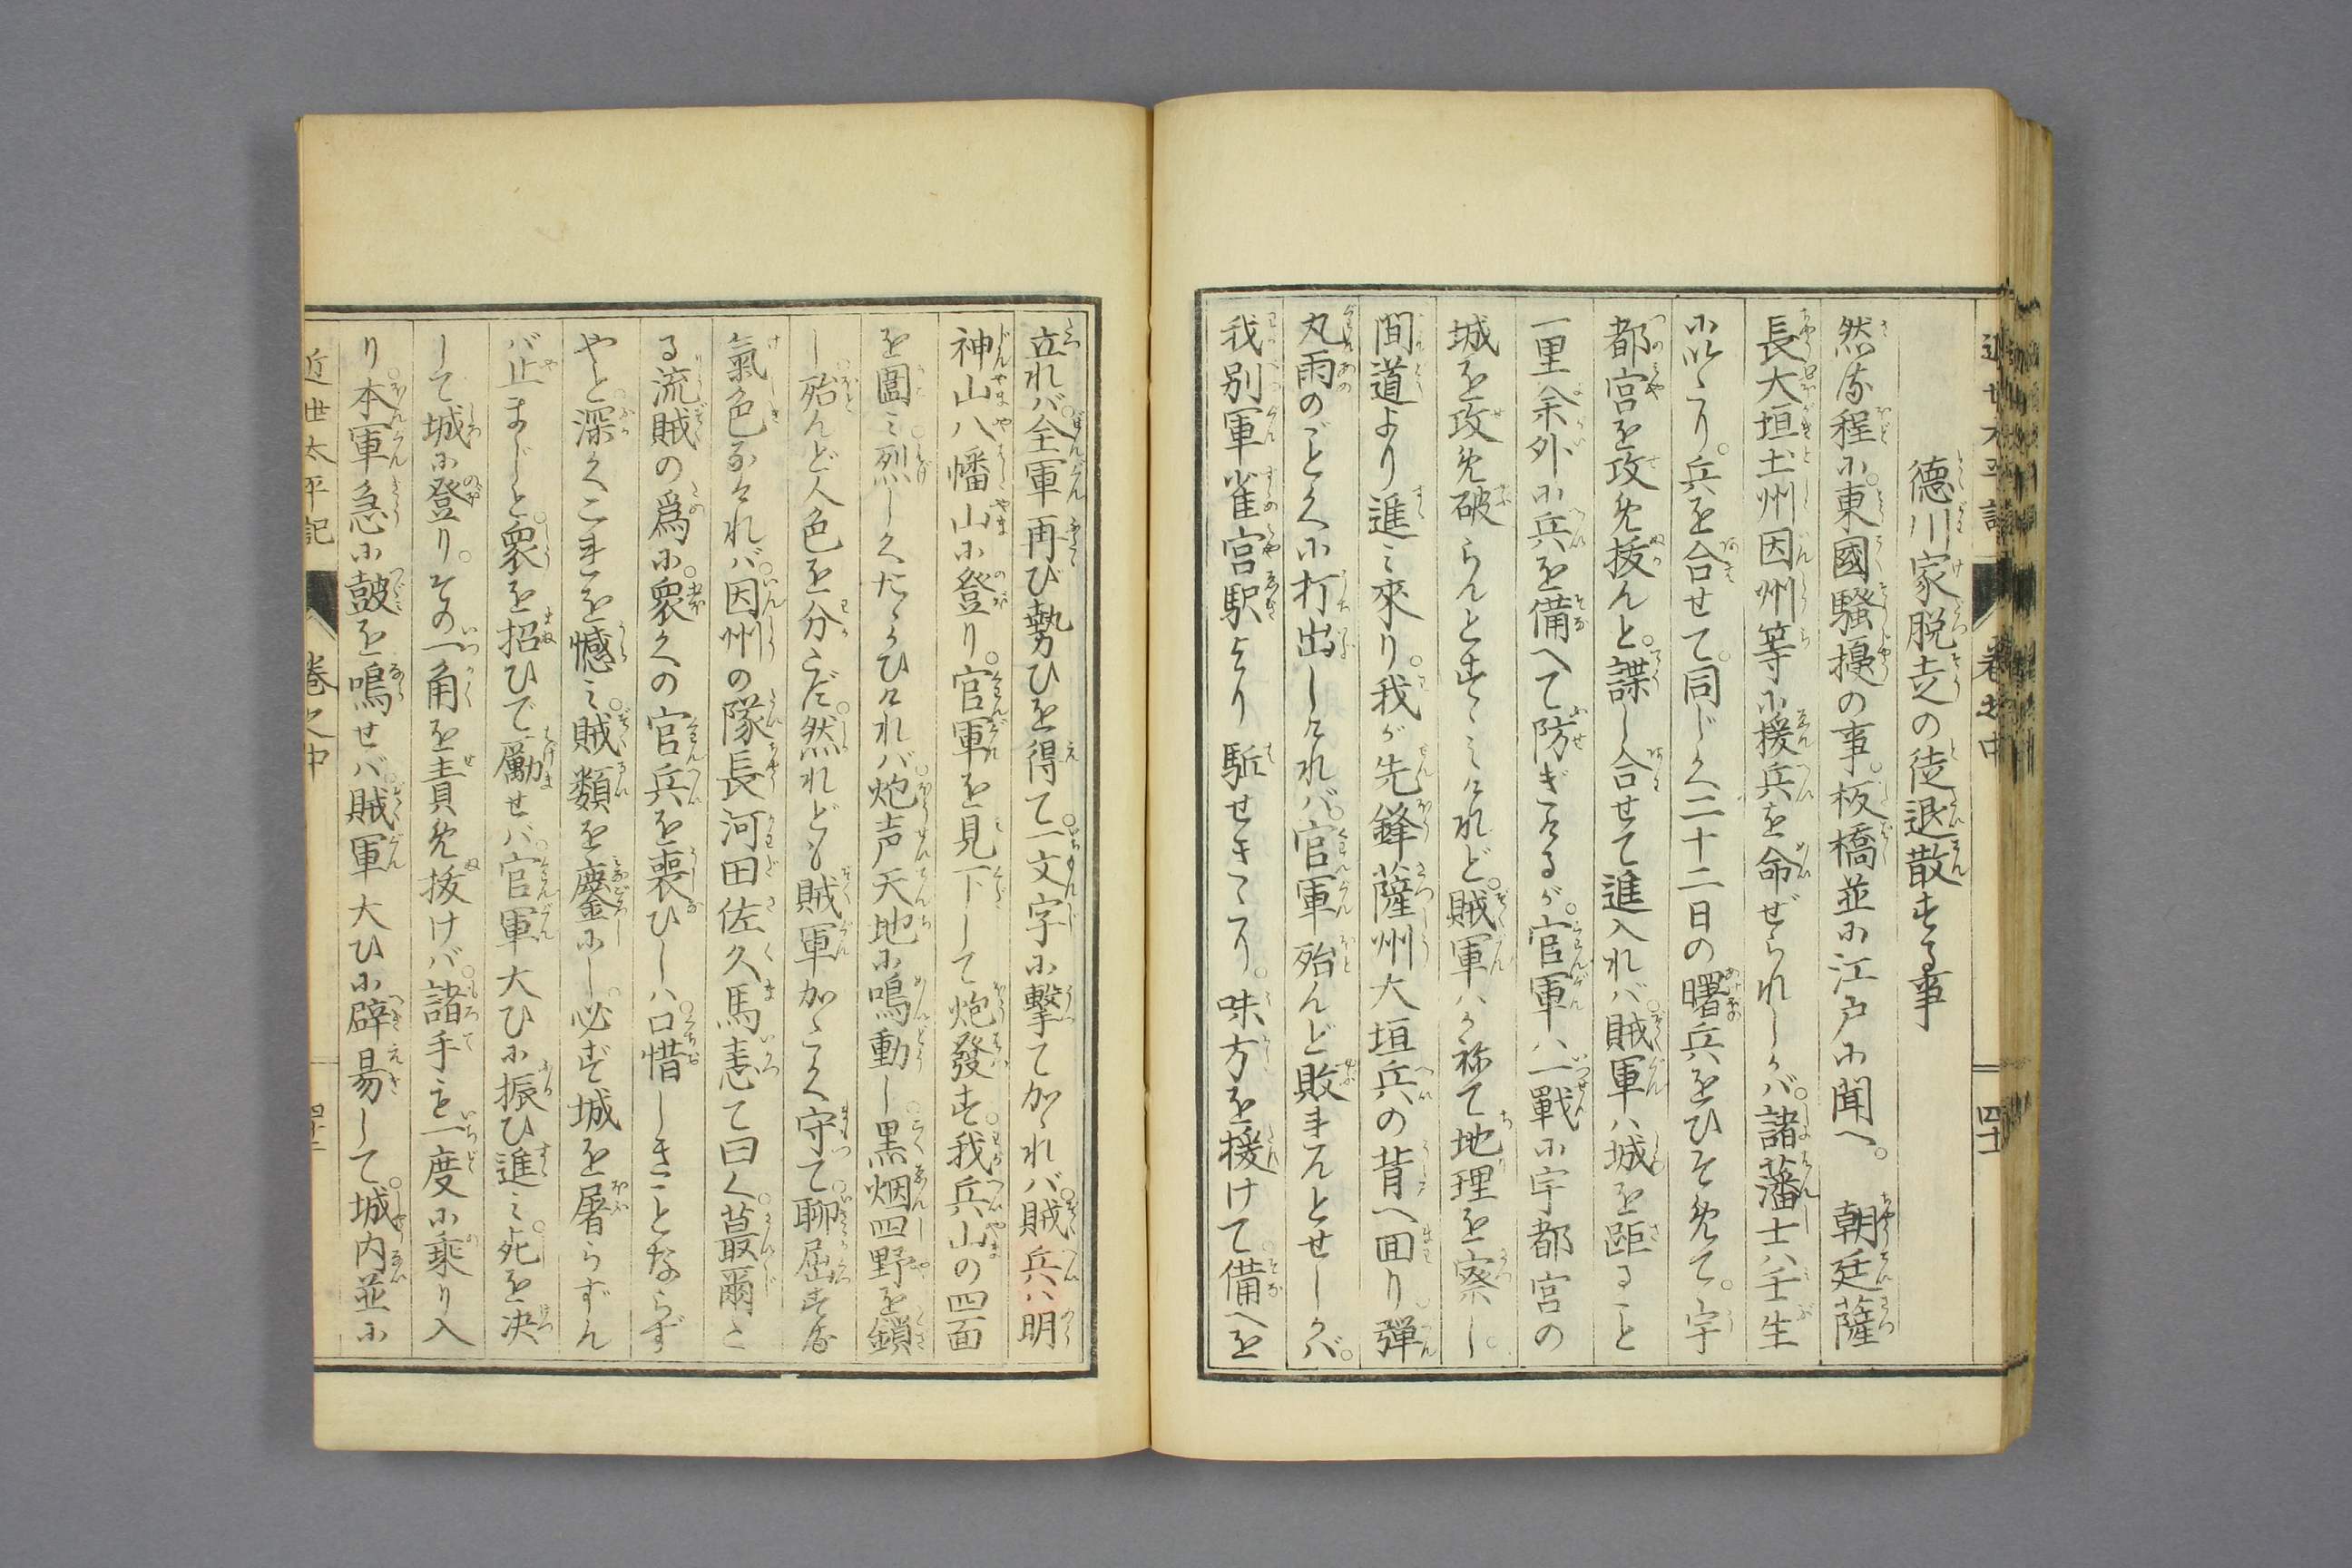 德川家脱走の徒退散する事
然る程に東國騒擾の事板橋並に江戸に聞へ 朝廷薩
長大垣土州因州等に援兵を命ぜられしかバ諸藩士ハ壬生
に以たり兵を合せて同じく二十二日の曙兵をひそめて宇
都宮を攻め抜んと諜し合せて進入れバ賊軍ハ城を距ること
一里余外に兵を備へて防ぎけるが官軍ハ一戰に宇都宮の
城を攻め破らんとすゝみけれど賊軍ハかねて地理を察し
間道より進み來り我が先鋒薩州大垣兵の背へ回り弾
丸雨のごとくに打出しけれバ官軍殆んど敗れんとせしかバ
我別軍雀宮駅より駈せきたり味方を援けて備へを
立れバ全軍再び勢ひを得て一文字に撃てかゝれバ賊兵ハ明
神山八幡山に登り官軍を見下して炮發す我兵山の四面
を圍み烈しくたゝかひけれバ炮声天地に鳴動し黒烟四野を鎖
し殆んど人色を分たず然れども賊軍かたく守て聊屈する
氣色なけれバ因州の隊長河田佐久馬恚て曰く蕞爾た
る流賊の爲に衆くの官兵を喪ひしハ口惜しきことならず
やと深くこれを憾み賊類を鏖にし必ず城を屠らずん
バ止まじと衆を招ひで勵せバ官軍大ひに振ひ進み死を決
して城に登りその一角を責め抜けバ諸手も一度に乘り入
り本軍急に皷を鳴せバ賊軍大ひに辟易して城内並に
近世太平記 卷之中